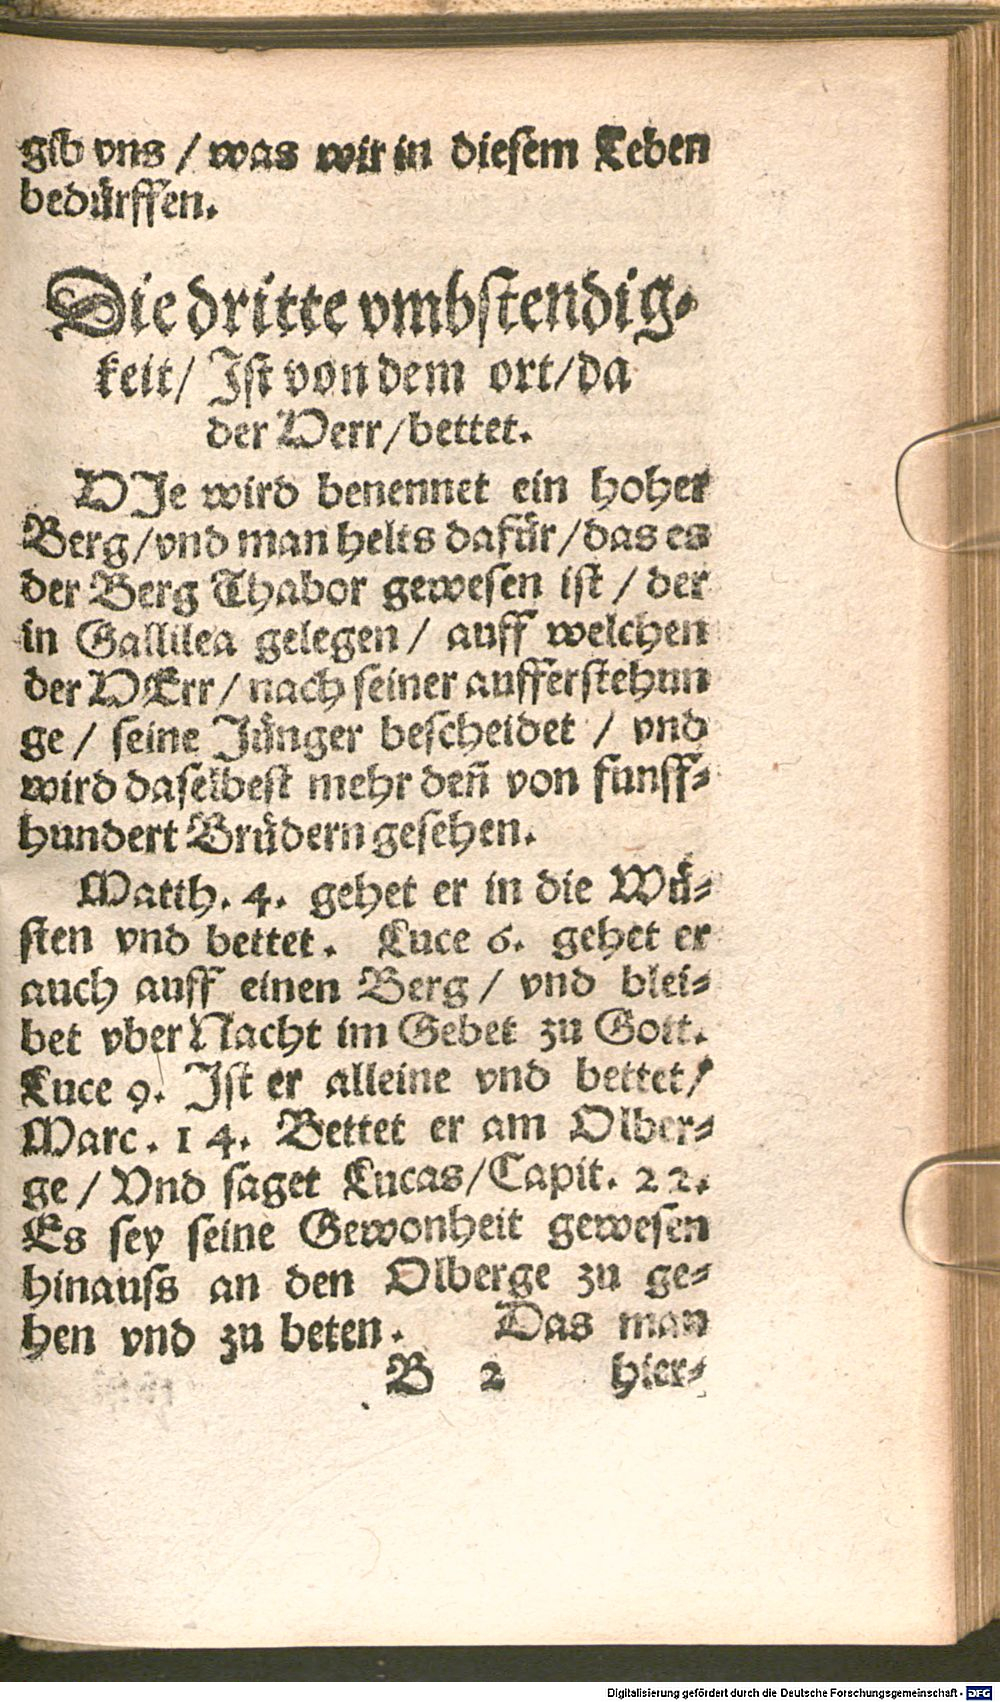 gib vns / was wir in diesem Leben
bedürffen.
Die dritte vmbstendig-
keit / Ist von dem ort / da
der HErr / bettet.
HIe wird benennet ein hoher
Berg / vnd man helts dafür / das es
der Berg Thabor gewesen ist / der
in Gallilea gelegen / auff welchen
der HErr / nach seiner aufferstehun
ge / seine Jünger bescheidet / vnd
wird daselbest mehr deñ von funff-
hundert Brüdern gesehen.
Matth. 4. gehet er in die Wü-
sten vnd bettet. Luce 6. gehet er
auch auff einen Berg / vnd blei-
bet vber Nacht im Gebet zu Gott.
Luce 9. Ist er alleine vnd bettet /
Marc. 14. Bettet er am Olber-
ge / Vnd saget Lucas / Capit. 22.
Es sey seine Gewonheit gewesen
hinauss an den Olberge zu ge-
hen vnd zu beten. Das man
B 2 hier-
Digitalisierung gefördert durch die Deutsche Forschungsgemeinschaft - DFG